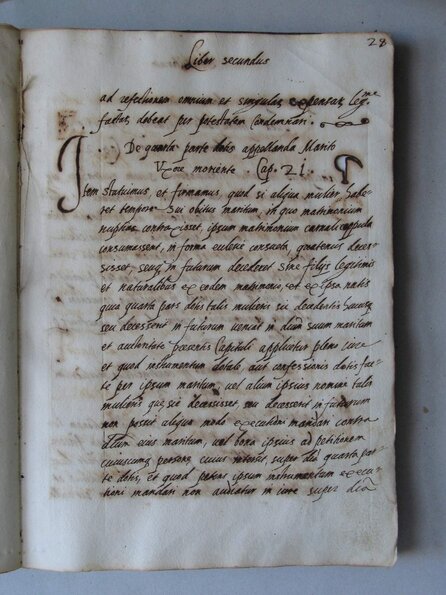 28
Liber secundus
ad refectionem omnium et singular expensar leg.me
factar debeat per potestatem condemnari.
De quarta parte dotis applicanda Marito
Uxore moriente Cap. 21.
Item statuimus, et firmamus, quod si aliqua mulier, habe-
ret tempore sui obitus maritum, in quo matrimonium
nuptias contraxisset, ipsum matrimonium carnali copula
consumassent, in forma eclesie consueta, quatenus deces-
sisset, seu in futurum decederet sine filys legitimis
et naturalibus ex eodem matrimonio, et ex ipsa natis
quod quarta pars dotis talis mulieris sic decedentis
seu decesserit in futurum veniat in dictum suum maritum
et authoritate praesentis Capituli applicetur pleno iure
et quod instrumentum dotale, aut confessionis dotis fac-
te per ipsum maritum, vel alium ipsius nomine talis
mulieris que sic decessisset seu decesserit in futurum
non possit aliquo modo executioni mandari contra
dictum eius maritum, vel bona ipsius ad petitionem
cuiuscumque persone cuius interesset, super dicta quarta par-
te dotis, et quod petens ipsum instrumentum execu-
tioni mandari non audiatur in iure super dicta